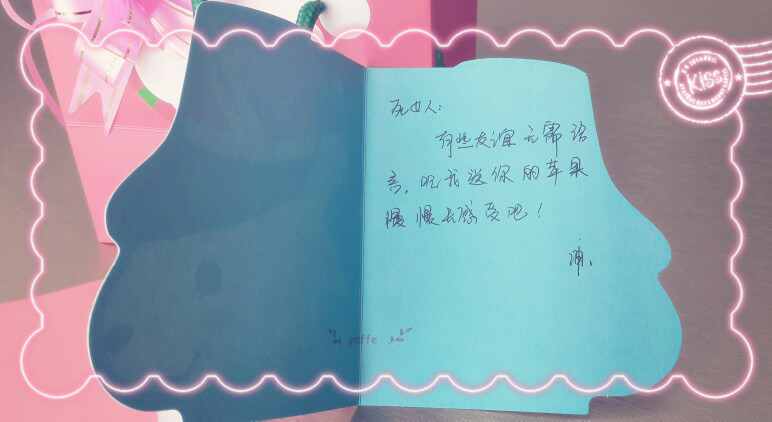 KISS
死女人:
有些友谊无需语
言,吃我送你的苹果
慢慢去感受吧!